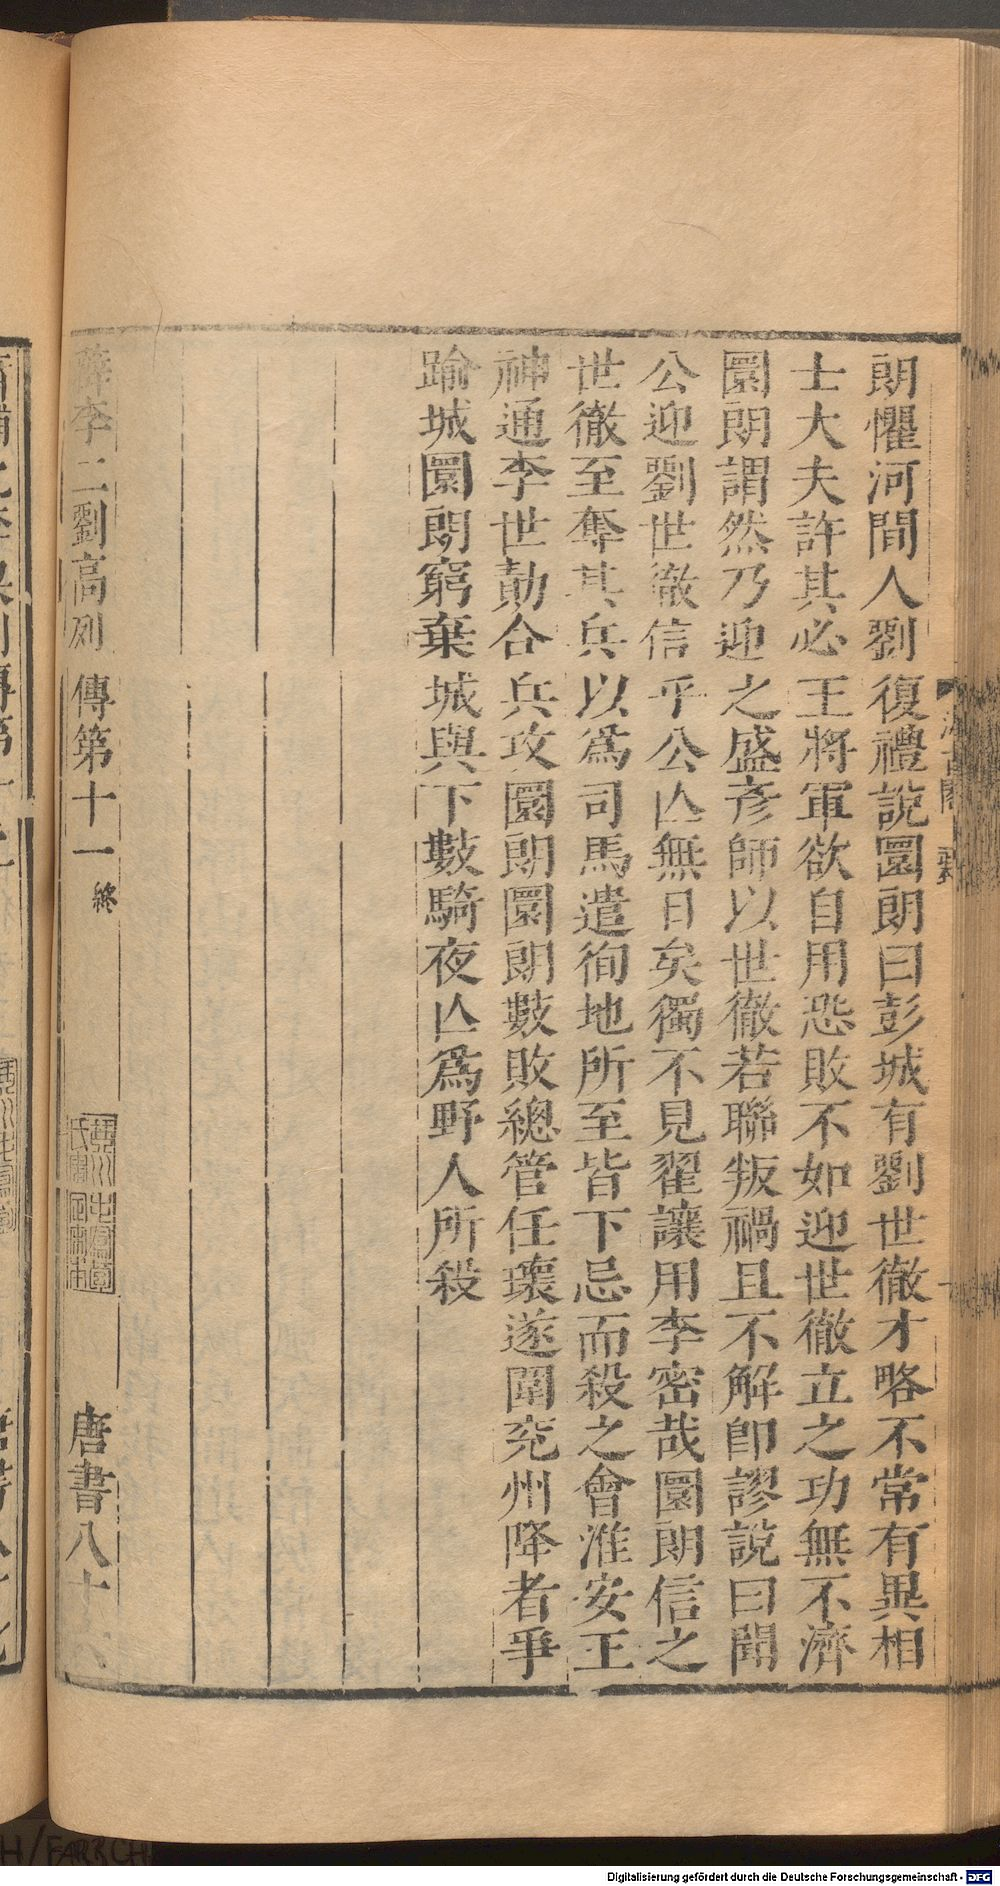 朗懼河間人劉復禮說圜朗曰彭城有劉世徹才略不常有異相
士大夫許其必王將軍欲自用恐敗不如迎世徹立之功無不濟
圜朗謂然乃迎之盛彥師以世徹若聯叛禍且不解卽謬說曰聞
公迎劉世徹信乎公亾無日矣獨不見翟讓用李密哉圜朗信之
世徹至奪其兵以爲司馬遣徇地所至皆下忌而殺之會淮安王
神通李世勣合兵攻圜朗圜朗數敗總管任瓌遂圍兖州降者爭
踰城圜朗窮棄城與下數騎夜亾爲野人所殺
薛李二劉高列傳第十一 終 唐書八十六
Digitalisierung gefördert durch die Deutsche Forschungsgemeinschaft - DFG